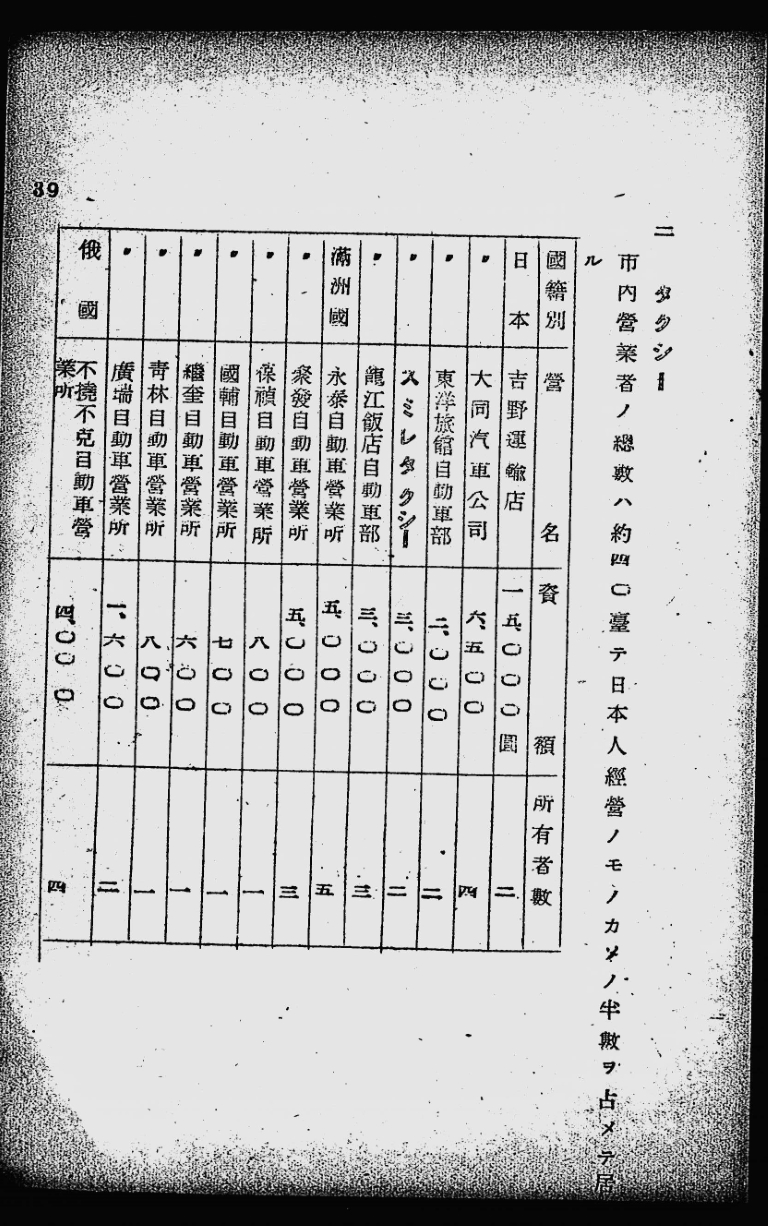 二 タクシー
市内營業者ノ總數ハ約四〇臺テ日本人經營ノモノカソノ半數ヲ占メテ居
ル
國籍別 營名 資額 所有者數
日本 吉野運輸店 一五、〇〇〇圓 二
〃 大同汽車公司 六、五〇〇 四
〃 東洋旅館自動車部 二、〇〇〇 二
〃 スミレタクシー 三、〇〇〇 二
〃 龍江飯店自動車部 三、〇〇〇 三
滿洲國 永泰自動車營業所 五、〇〇〇 五
〃 衆發自動車營業所 五、〇〇〇 三
〃 保禎自動車營業所 八〇〇 一
〃 國輔自動車營業所 七〇〇 一
〃 繼奎自動車營業所 六〇〇 一
〃 靑林自動車營業所 八〇〇 一
〃 廣瑞自動車營業所 一、六〇〇 二
俄國 不撓不克自動車營業所 四、〇〇〇 四
39